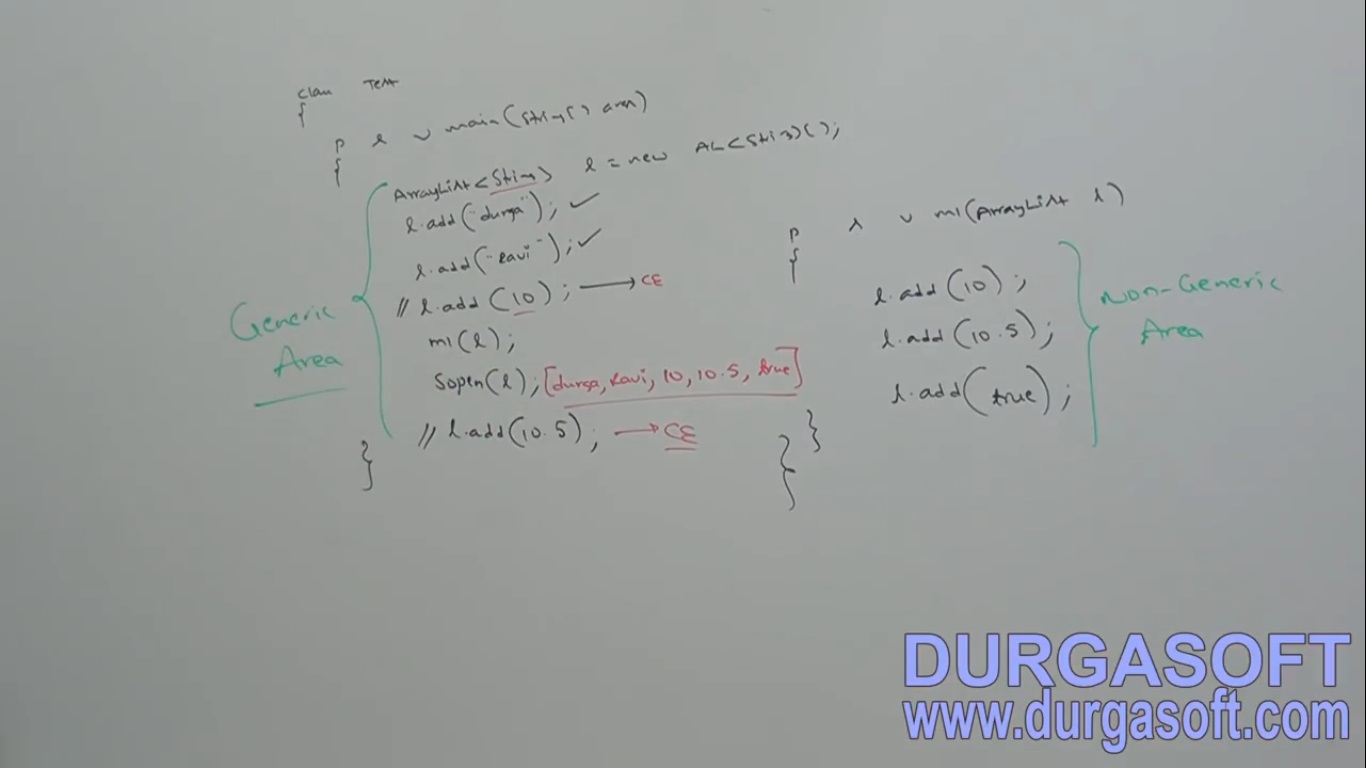 class Test
{
p s v main(String[] args)
{
ArrayList<String> l = new AL<String>();
l.add("durga"); ✓
l.add("ravi"); ✓
// l.add(10); → CE
m1(l);
Sopln(l); [durga, ravi, 10, 10.5, true]
// l.add(10.5); → CE
}
Generic
Area
p s v m1(ArrayList l)
{
l.add(10);
l.add(10.5);
l.add(true);
}
}
Non-Generic
Area
DURGASOFT
www.durgasoft.com